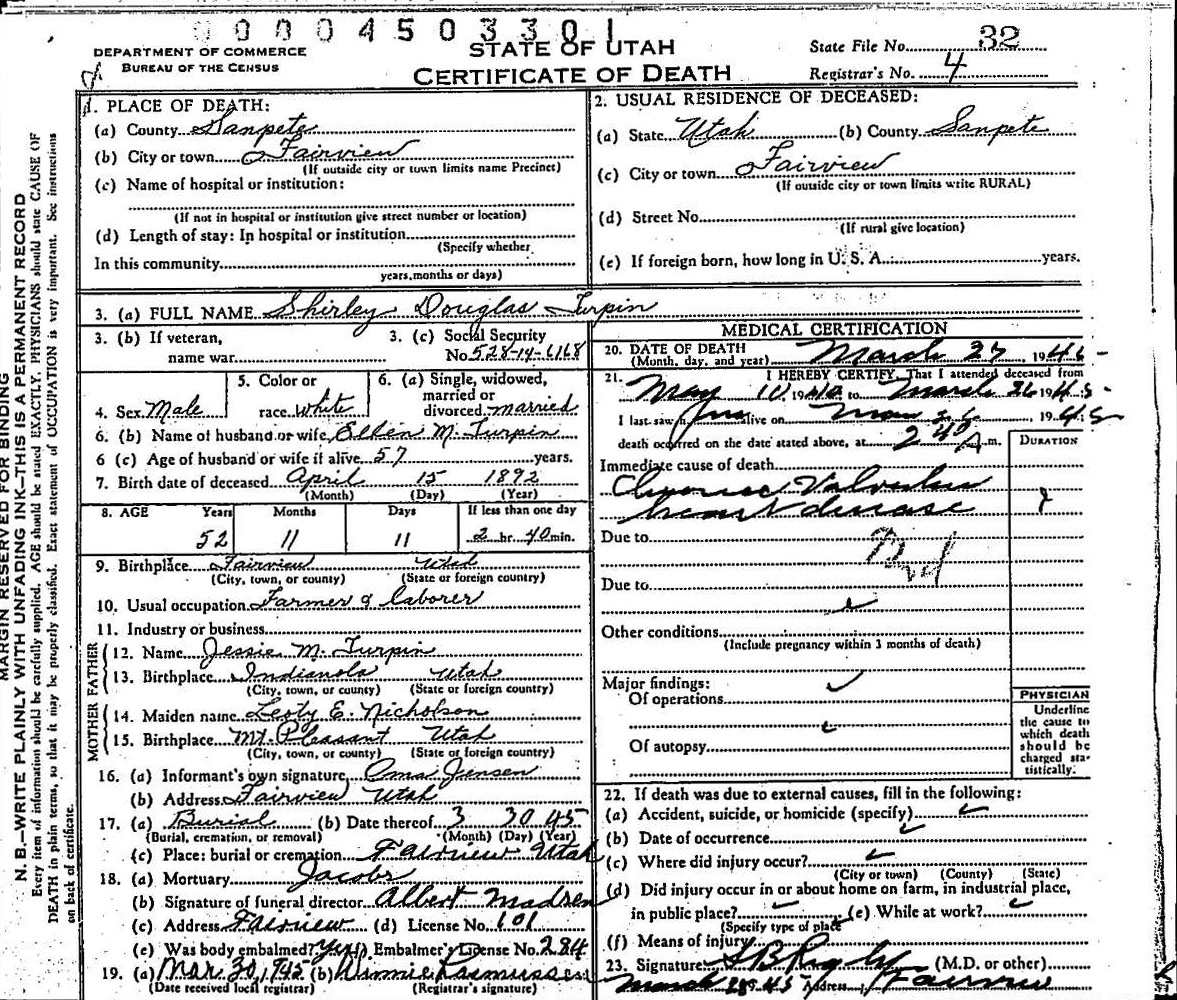 0000450 3301
DEPARTMENT OF COMMERCE
BUREAU OF THE CENSUS
STATE OF UTAH
CERTIFICATE OF DEATH
State File No. 32
Registrar's No. 4
MARGIN RESERVED FOR BINDING
N. B.—WRITE PLAINLY WITH UNFADING INK—THIS IS A PERMANENT RECORD
Every item of information should be carefully supplied. AGE should be stated EXACTLY. PHYSICIANS should state CAUSE OF
DEATH in plain terms, so that it may be properly classified. Exact statement of OCCUPATION is very important. See instructions
on back of certificate.
1. PLACE OF DEATH:
(a) County Sanpete
(b) City or town Fairview
(If outside city or town limits name Precinct)
(c) Name of hospital or institution:
(If not in hospital or institution give street number or location)
(d) Length of stay: In hospital or institution
(Specify whether
In this community
years, months or days)
2. USUAL RESIDENCE OF DECEASED:
(a) State Utah (b) County Sanpete
(c) City or town Fairview
(If outside city or town limits write RURAL)
(d) Street No.
(If rural give location)
(e) If foreign born, how long in U. S. A.: years.
3. (a) FULL NAME Shirley Douglas Turpin
3. (b) If veteran, name war
3. (c) Social Security No. 528-14-6168
4. Sex Male
5. Color or race White
6. (a) Single, widowed, married or divorced married
6. (b) Name of husband or wife Ellen M. Turpin
6 (c) Age of husband or wife if alive 57 years.
7. Birth date of deceased April 15 1892
(Month) (Day) (Year)
8. AGE Years Months Days If less than one day
52 11 11 2 hr. 40 min.
9. Birthplace Fairview Utah
(City, town, or county) (State or foreign country)
10. Usual occupation Farmer & laborer
11. Industry or business
FATHER
12. Name Jessie M. Turpin
13. Birthplace Indianola Utah
(City, town, or county) (State or foreign country)
MOTHER
14. Maiden name E. Nicholson
15. Birthplace Mt. Pleasant Utah
(City, town, or county) (State or foreign country)
16. (a) Informant's own signature Oma Jensen
(b) Address Fairview Utah
17. (a) Burial (b) Date thereof 3 30 45
(Burial, cremation, or removal) (Month) (Day) (Year)
(c) Place: burial or cremation Fairview Utah
18. (a) Mortuary Jacobs
(b) Signature of funeral director Albert Madsen
(c) Address Fairview (d) License No. 101
(e) Was body embalmed? Yes (f) Embalmer's License No. 284
19. (a) Mar 30, 1945 (b) Minnie Rasmussen
(Date received local registrar) (Registrar's signature)
MEDICAL CERTIFICATION
20. DATE OF DEATH
(Month, day, and year) March 27, 194
21. I HEREBY CERTIFY, That I attended deceased from
May 1940 to March 26 1945
I last saw him alive on Mar 26 1945
death occurred on the date stated above, at 2 40 A m.
DURATION
Immediate cause of death
Chronic Valvular
heart disease
Due to
Due to
Other conditions
(Include pregnancy within 3 months of death)
Major findings:
Of operations
Of autopsy
PHYSICIAN
Underline
the cause to
which death
should be
charged sta-
tistically.
22. If death was due to external causes, fill in the following:
(a) Accident, suicide, or homicide (specify)
(b) Date of occurrence
(c) Where did injury occur?
(City or town) (County) (State)
(d) Did injury occur in or about home on farm, in industrial place,
in public place? (e) While at work?
(Specify type of place
(f) Means of injury
23. Signature Rigby (M.D. or other)
March 1945 Address Fairview